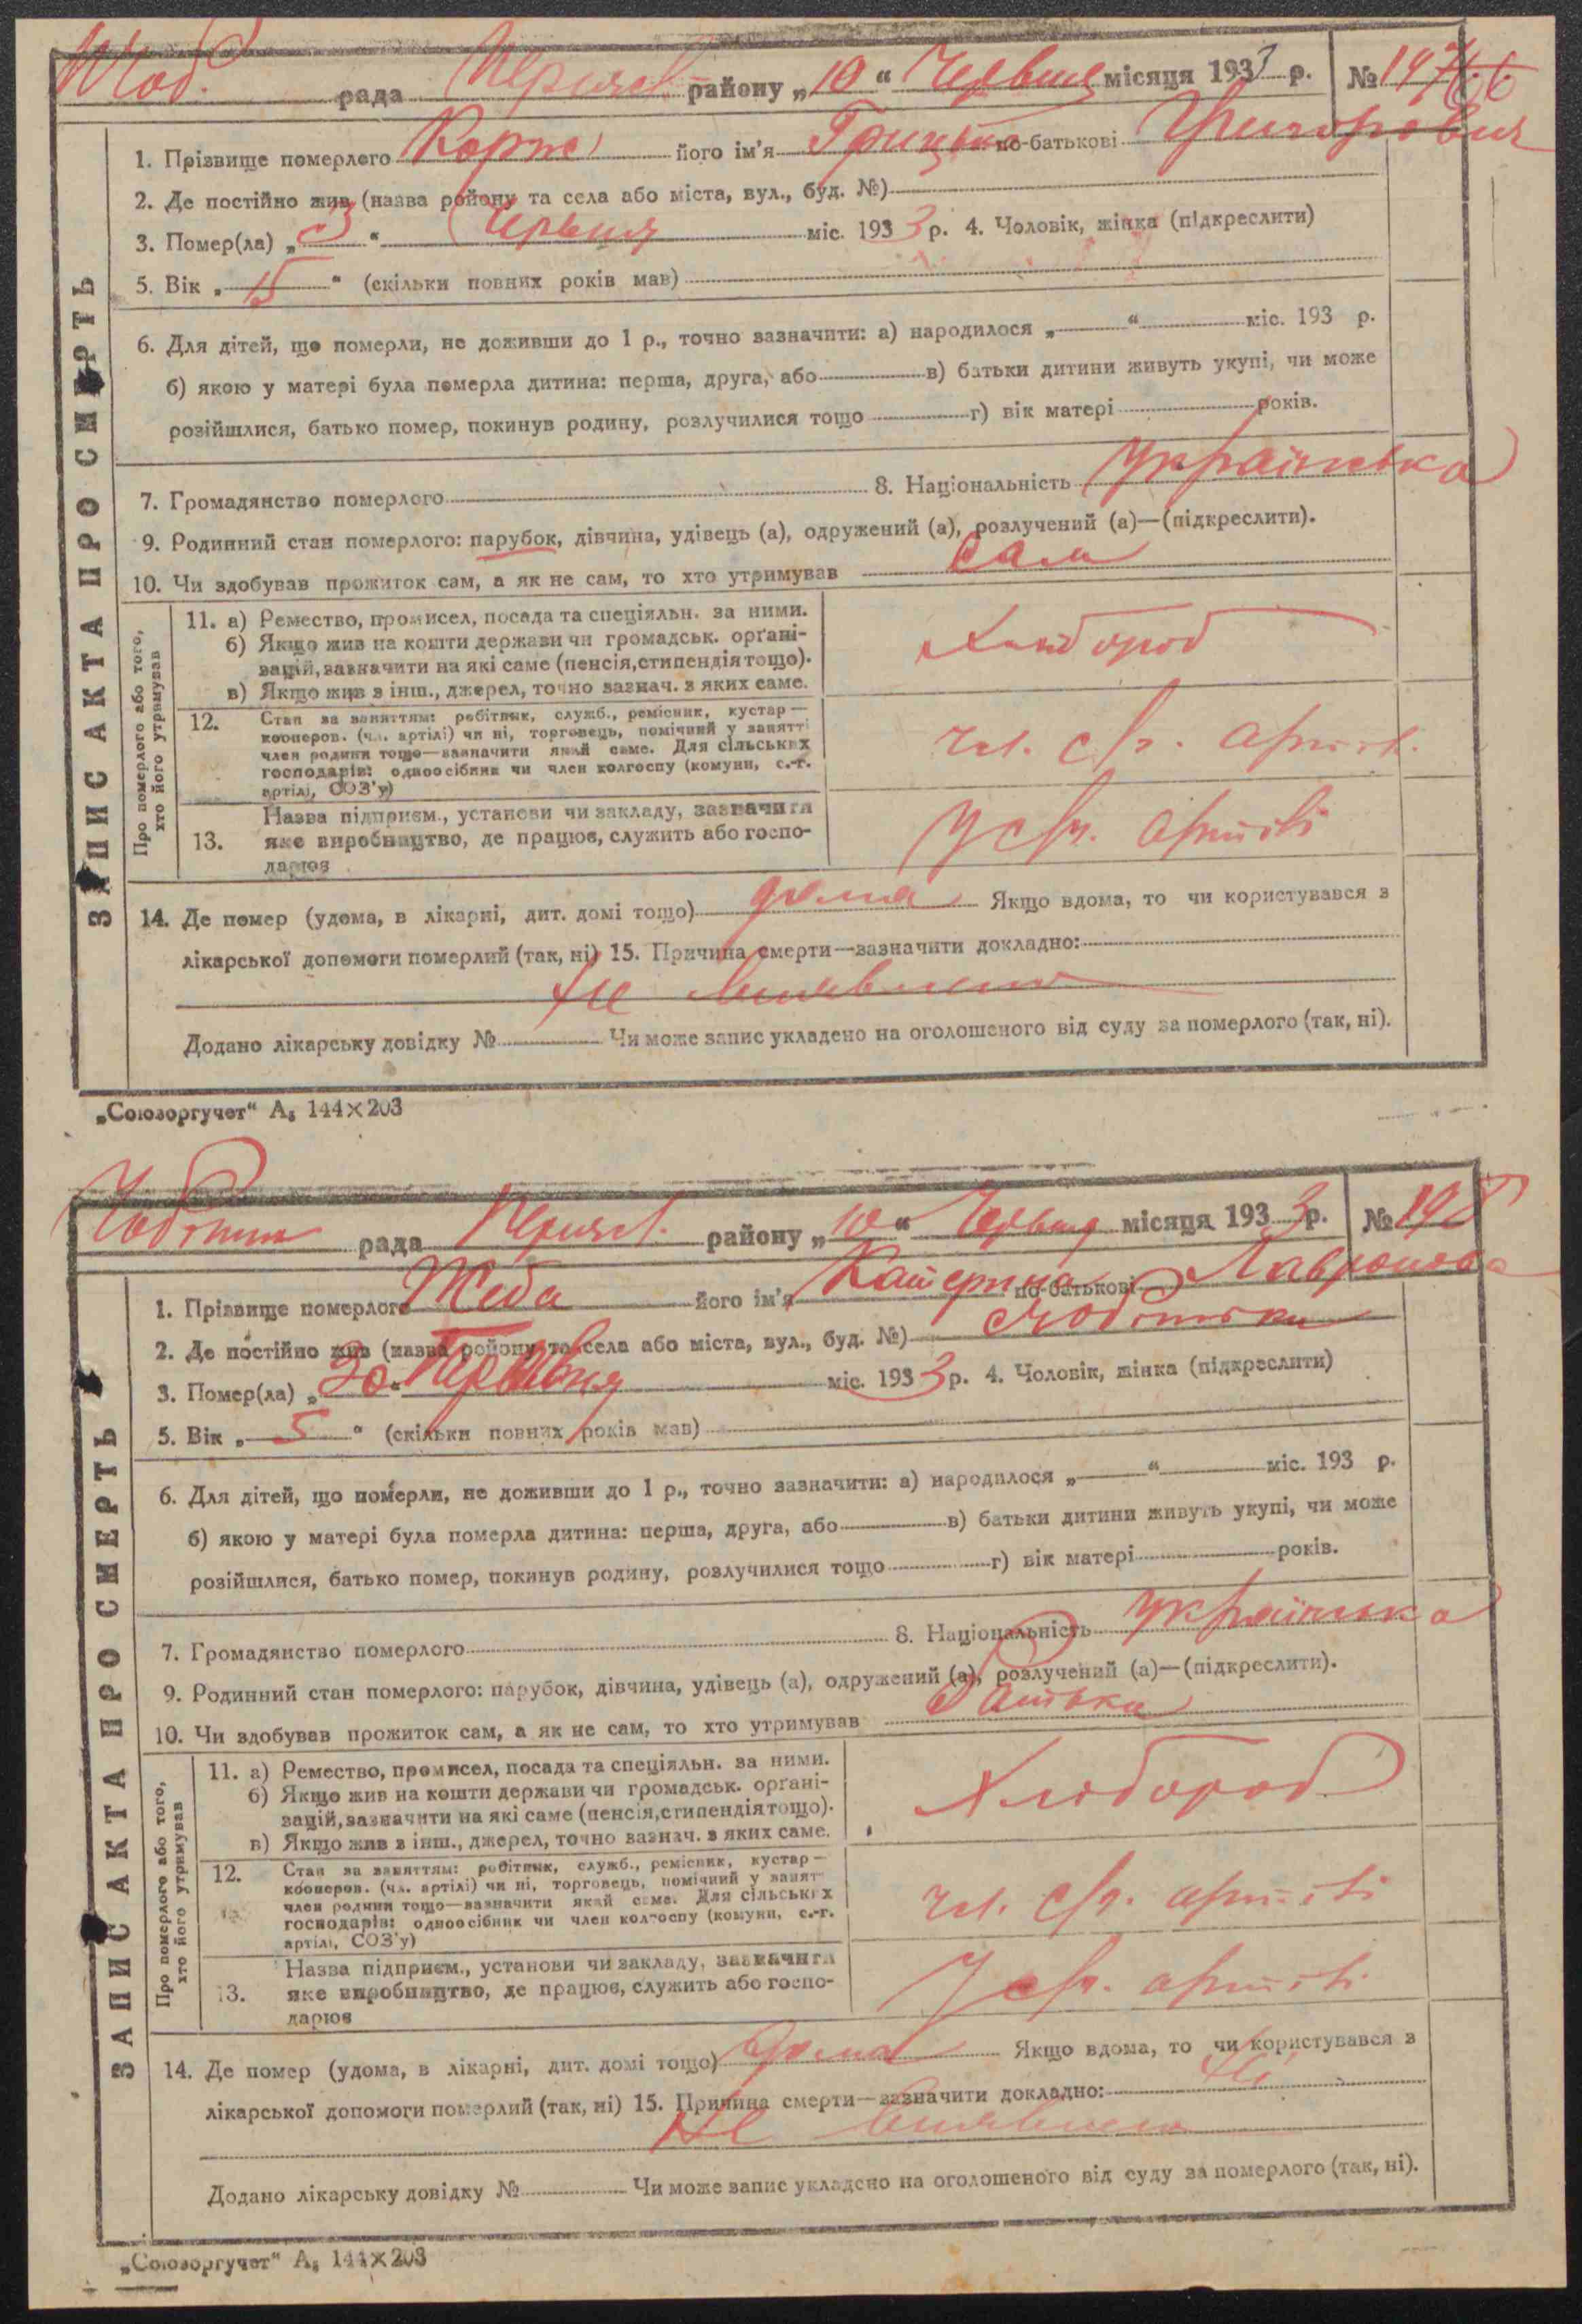 рада району „10“ Червня місяця 1933 р. № 197
1. Прізвище померлого Корж його ім'я Грицько по-батькові Григорович
2. Де постійно жив (назва району та села або міста, вул., буд. №)
3. Помер(ла) „3“ Червня міс. 1933 р. 4. Чоловік, жінка (підкреслити)
5. Вік „15“ (скільки повних років мав)
6. Для дітей, що померли, не доживши до 1 р., точно зазначити: а) народилося „ “ міс. 193 р.
б) якою у матері була померла дитина: перша, друга, або в) батьки дитини живуть укупі, чи може
розійшлися, батько помер, покинув родину, розлучилися тощо г) вік матері років.
7. Громадянство померлого 8. Національність українська
9. Родинний стан померлого: парубок, дівчина, удівець (а), одружений (а), розлучений (а)—(підкреслити).
10. Чи здобував прожиток сам, а як не сам, то хто утримував сам
ЗАПИС АКТА ПРО СМЕРТЬ
Про померлого або того,
хто його утримував
11. а) Ремество, промисел, посада та спеціяльн. за ними.
б) Якщо жив на кошти держави чи громадськ. орґані-
зацій, зазначити на які саме (пенсія, стипендія тощо).
в) Якщо жив з інш., джерел, точно зазнач. з яких саме.
Хлібороб
12. Стан за заняттям: робітник, служб., ремісник, кустар—
кооперов. (чл. артілі) чи ні, торговець, помічний у занятті
член родини тощо—зазначити який саме. Для сільських
господарів: одноосібник чи член колгоспу (комуни, с.-г.
артілі, СОЗ'у)
чл. с/г. артілі
13. Назва підприєм., установи чи закладу, зазначити
яке виробництво, де працює, служить або госпо-
дарює
У с/г. артілі
14. Де помер (удома, в лікарні, дит. домі тощо) дома Якщо вдома, то чи користувався з
лікарської допомоги померлий (так, ні) 15. Причина смерти—зазначити докладно:
Не виявлено
Додано лікарську довідку № Чи може запис укладено на оголошеного від суду за померлого (так, ні).
„Союзоргучет“ А₅ 144×203
рада району „10“ Червня місяця 1933 р. № 198
1. Прізвище померлого Жеба його ім'я Катерина по-батькові Лавронова
2. Де постійно жив (назва району та села або міста, вул., буд. №)
3. Помер(ла) „30“ Червня міс. 1933 р. 4. Чоловік, жінка (підкреслити)
5. Вік „5“ (скільки повних років мав)
6. Для дітей, що померли, не доживши до 1 р., точно зазначити: а) народилося „ “ міс. 193 р.
б) якою у матері була померла дитина: перша, друга, або в) батьки дитини живуть укупі, чи може
розійшлися, батько помер, покинув родину, розлучилися тощо г) вік матері років.
7. Громадянство померлого 8. Національність українська
9. Родинний стан померлого: парубок, дівчина, удівець (а), одружений (а), розлучений (а)—(підкреслити).
10. Чи здобував прожиток сам, а як не сам, то хто утримував Батьки
ЗАПИС АКТА ПРО СМЕРТЬ
Про померлого або того,
хто його утримував
11. а) Ремество, промисел, посада та спеціяльн. за ними.
б) Якщо жив на кошти держави чи громадськ. орґані-
зацій, зазначити на які саме (пенсія, стипендія тощо).
в) Якщо жив з інш., джерел, точно зазнач. з яких саме.
Хлібороб
12. Стан за заняттям: робітник, служб., ремісник, кустар—
кооперов. (чл. артілі) чи ні, торговець, помічний у занят
член родини тощо—зазначити який саме. Для сільських
господарів: одноосібник чи член колгоспу (комуни, с.-г.
артілі, СОЗ'у)
чл. с/г. артілі
13. Назва підприєм., установи чи закладу, зазначити
яке виробництво, де працює, служить або госпо-
дарює
У с/г. артілі
14. Де помер (удома, в лікарні, дит. домі тощо) дома Якщо вдома, то чи користувався з
лікарської допомоги померлий (так, ні) 15. Причина смерти—зазначити докладно: ні
Не виявлено
Додано лікарську довідку № Чи може запис укладено на оголошеного від суду за померлого (так, ні).
„Союзоргучет“ А₅ 144×203